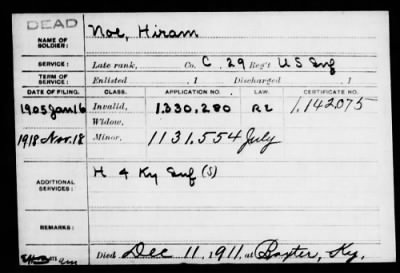 DEAD
NAME OF SOLDIER: Noe, Hiram
SERVICE: Late rank, Co. C, 29 Reg't U S Inf
TERM OF SERVICE: Enlisted , 1 Discharged , 1
DATE OF FILING. CLASS. APPLICATION NO. LAW. CERTIFICATE NO.
1905 Jan 16 Invalid, 1.330.280 R L 1.142.075
Widow,
1918 Nov. 18 Minor, 1131.554 July
ADDITIONAL SERVICES: H 4 Ky Inf (S)
REMARKS:
Died Dec 11, 1911, at Baxter, Ky.